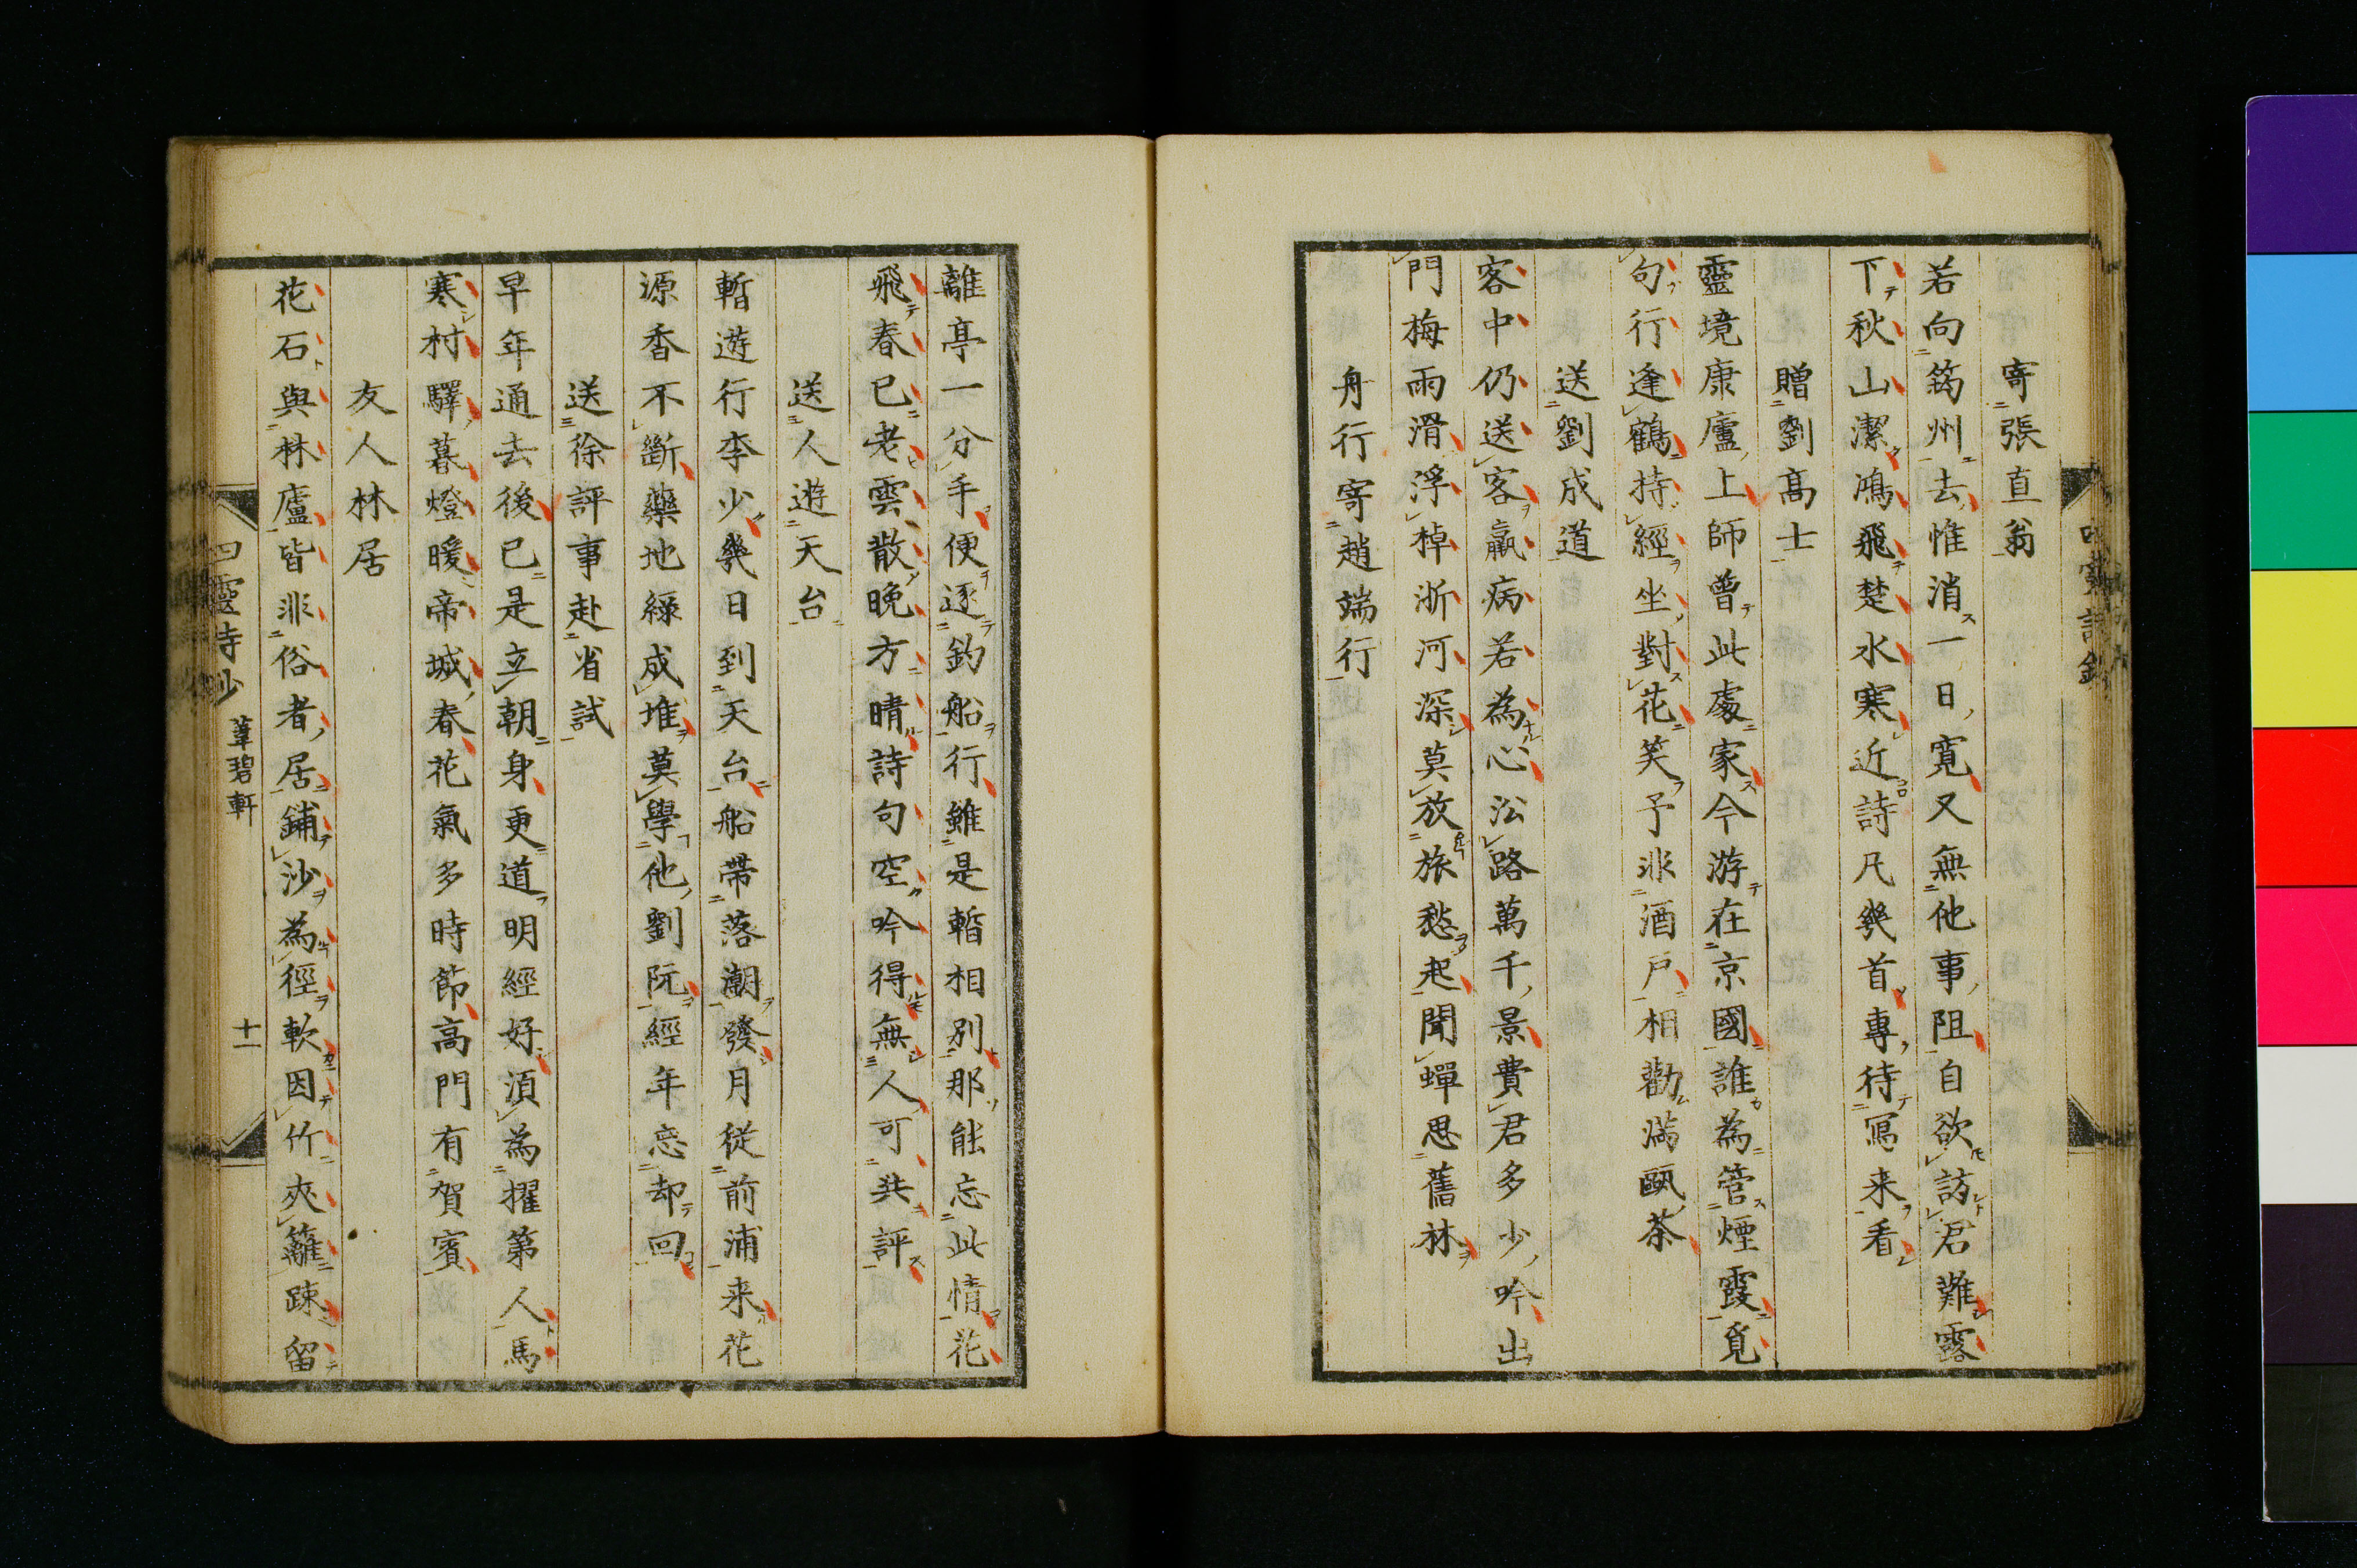 寄張直翁
若向筠州去惟消一日寛又無他事阻自欲訪君難露
下秋山潔鴻飛楚水寒近詩凡幾首專待寫来看
贈劉高士
靈境康廬上師曽此處家今游在京國誰為管煙霞覓
句行逢鶴持經坐對花笑予非酒戸相勸滿甌茶
送劉成道
客中仍送客羸病若為心㳂路萬千景費君多少吟出
門梅雨滑浮棹浙河深莫放旅愁起聞蟬思舊林
舟行寄趙端行
離亭一分手便逐釣船行雖是暫相別那能忘此情花
飛春已老雲散晚方晴詩句空吟得無人可共評
送人遊天台
暫遊行李少幾日到天台船帶落潮發月従前浦来花
源香不斷藥地緑成堆莫學他劉阮經年忘却回
送徐評事赴省試
早年通去後已是立朝身更道明經好湏為擢第人馬
寒村驛暮燈暖帝城春花氣多時節高門有賀賓
友人林居
花石與林廬皆非俗者居鋪沙為徑軟因竹夾籬踈留
四靈詩鈔 葦碧軒 十一